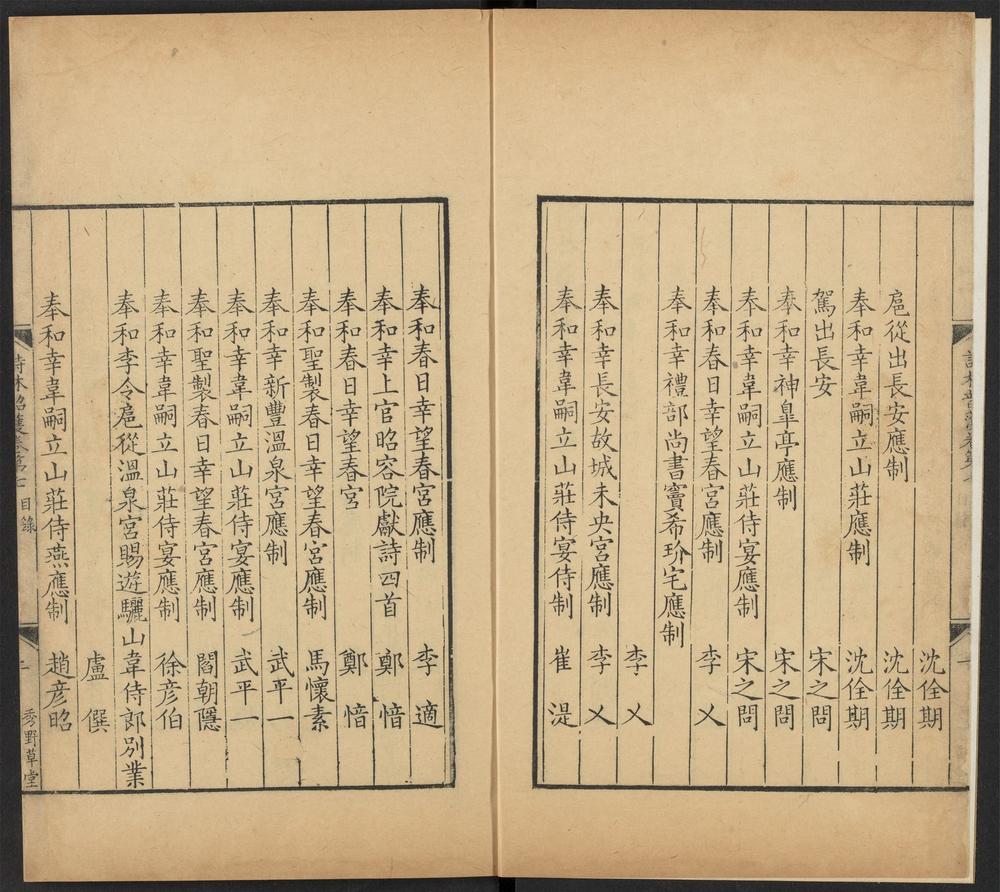 沈佺期
扈從出長安應制 沈佺期
奉和幸韋嗣立山莊應制 沈佺期
駕出長安 宋之問
奉和幸神臯亭應制 宋之問
奉和幸韋嗣立山莊侍宴應制 宋之問
奉和春日幸望春宮應制 李乂
奉和幸禮部尚書竇希玠宅應制
李乂
奉和幸長安故城未央宮應制 李乂
奉和幸韋嗣立山莊侍宴侍制 崔湜
奉和春日幸望春宮應制 李適
奉和幸上官昭容院獻詩四首 鄭愔
奉和春日幸望春宮 鄭愔
奉和聖製春日幸望春宮應制 馬懷素
奉和幸新豐溫泉宮應制 武平一
奉和幸韋嗣立山莊侍宴應制 武平一
奉和聖製春日幸望春宮應制 閻朝隱
奉和幸韋嗣立山莊侍宴應制 徐彥伯
奉和李令扈從溫泉宮賜遊驪山韋侍郎別業
盧僎
奉和幸韋嗣立山莊侍燕應制 趙彥昭
詩林韶濩卷第七 目錄 二 秀野草堂